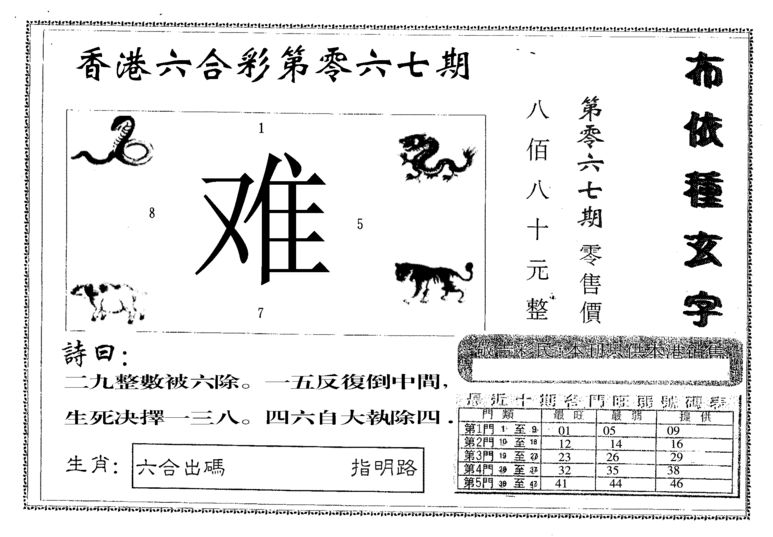 香港六合彩第零六七期
布依種玄字
第零六七期零售價
八佰八十元整
1
难
8
5
7
詩曰：
二九整數被六除。一五反復倒中間，
生死决擇一三八。四六自大執除四．
生肖：六合出碼 指明路
最近十期各門旺弱號碼表
門類 最旺 最弱 提供
第1門 1 至 9 01 05 09
第2門 10 至 18 12 14 16
第3門 19 至 23 26 29
第4門 至 32 35 38
第5門 至 41 44 46